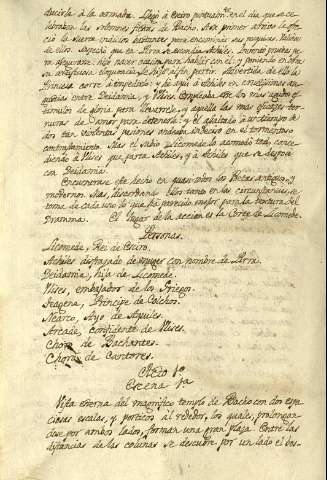 ducirla à la armada. Llegó à Sciro puntualm.te en el dia que se ce-
lebraban las solemnes fiestas de Bacho. Al primer arribo le ofre-
ció la suerte indicios bastantes para encaminar sus pesquisas. Valióse
de ellos. Sospechó que en Pirra se escondia Achiles. Inventó pruebas p.a
asegurarse: hizo nacer ocasion para hablar con él; y poniendo en obra
su artificiosa eloquencia le indujo à partir. Advertida de ello la
Princesa corre à impedirlo: y he aqui à Achiles en crueles an-
gustias entre Deidamia, y Ulises. Emplea este los mas agudos es-
timulos de gloria para llevarsele; y aquella las mas eficaces ter-
nuras de amor para detenerle: y él asaltado à un tiempo de
dos tan violentas pasiones ondea indeciso en el tormentoso
contrastamiento. Mas el sabio Licomede lo acomoda todo, conce-
diendo à Ulises que parta Achiles, y à Achiles que se despose
con Deidamia.
Encuentrase este hecho en quasi todos los Poetas antiguos, y
modernos. Mas, discordando ellos tanto en las circunstancias, se
toma de cada uno lo que ha parecido mejor para la textura del
Dramma. El lugar de la accion es la Corte de Licomede.
Personas.
Licomede, Rei de Sciro.
Achiles disfrazado de muger con nombre de Pirra.
Deidamia, hija de Licomede.
Ulises, embajador de los Griegos.
Teagene, Principe de Calchos.
Nearco, Ayo de Aquiles.
Arcade, Confidente de Ulises.
Choro de Bachantes.
Choro de Cantores.
Acto 1.º
Escena 1.ª
Vista externa del magnifico templo de Bacho con dos espa-
ciosas escalas, y porticos al rededor, los quales prolongan-
dose por ambos lados, forman una gran plaza. Entre las
distancias de las colunas se descubre por un lado el bos-